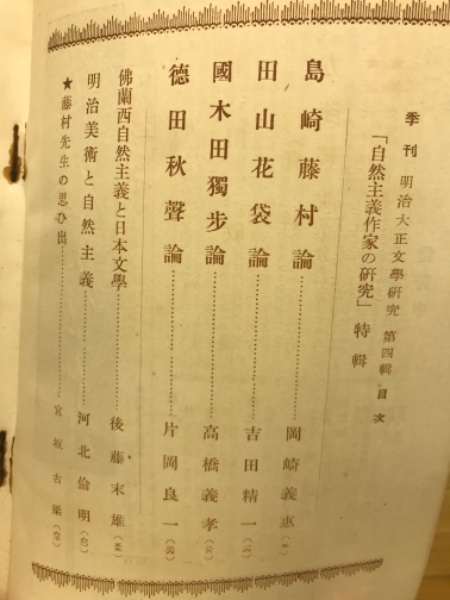 季刊 明治大正文學研究 第四輯 目次
「自然主義作家の研究」特輯
島崎藤村論…岡崎義惠
田山花袋論…吉田精一
國木田獨步論…高橋義孝
德田秋聲論…片岡良一
佛蘭西自然主義と日本文學…後藤末雄
明治美術と自然主義…河北倫明
★藤村先生の思ひ出…宮坂古梁